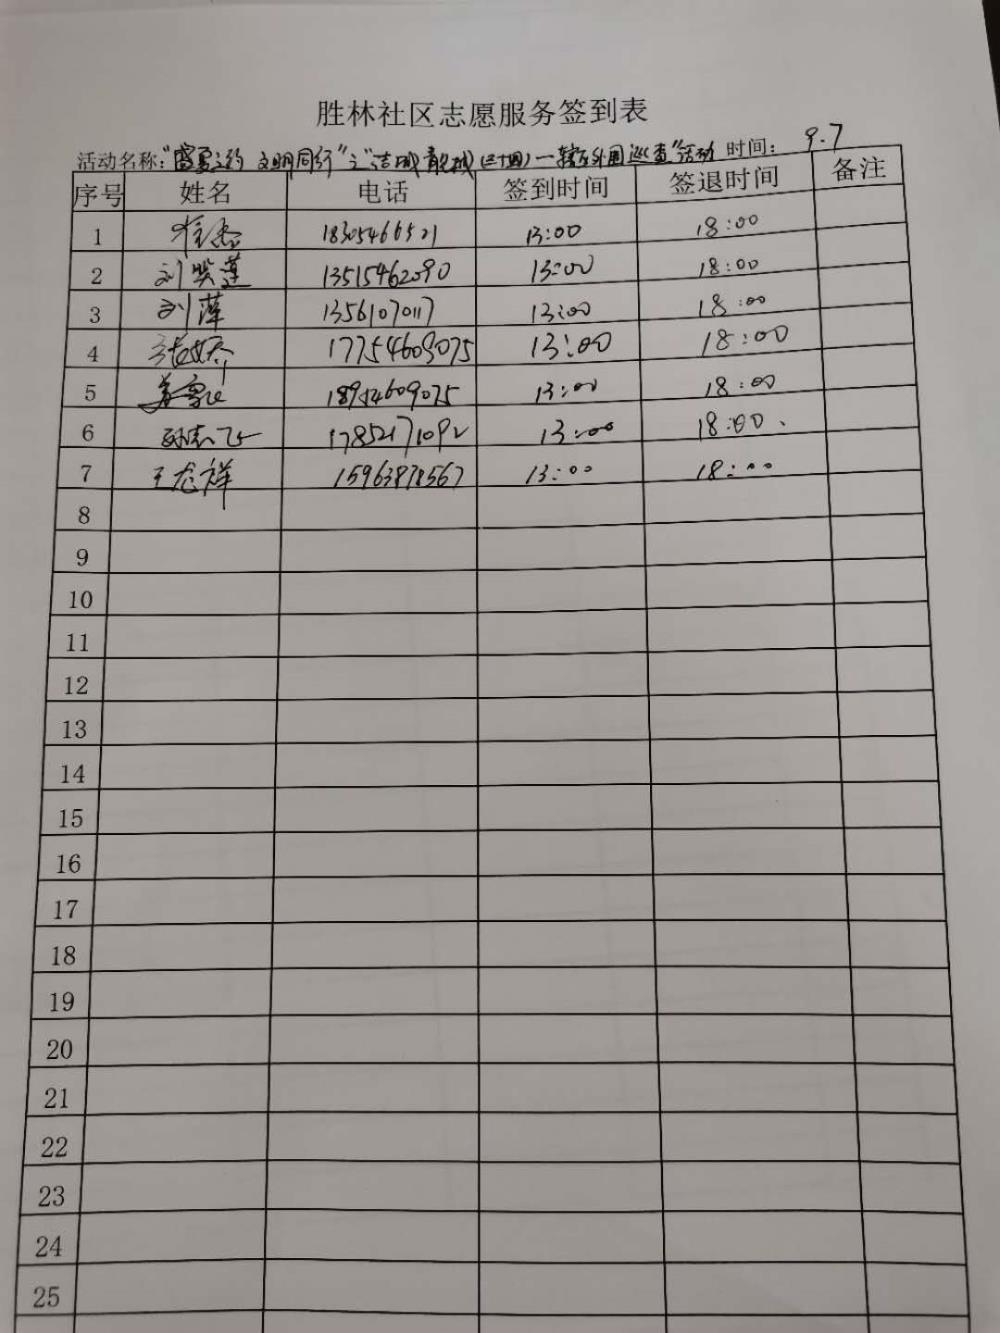 胜林社区志愿服务签到表
活动名称:"盛夏之约 文明同行"之"洁城靓城(二十四)一辖区外围巡查"活动 时间: 9.7
序号 姓名 电话 签到时间 签退时间 备注
1 18305466521 13:00 18:00
2 刘 莲 13515462090 13:00 18:00
3 刘萍 13561070117 13:00 18:00
4 张 17754609075 13:00 18:00
5 姜 18954609075 13:00 18:00
6 孙志飞 17852171092 13:00 18:00
7 王龙祥 15963878567 13:00 18:00
8
9
10
11
12
13
14
15
16
17
18
19
20
21
22
23
24
25